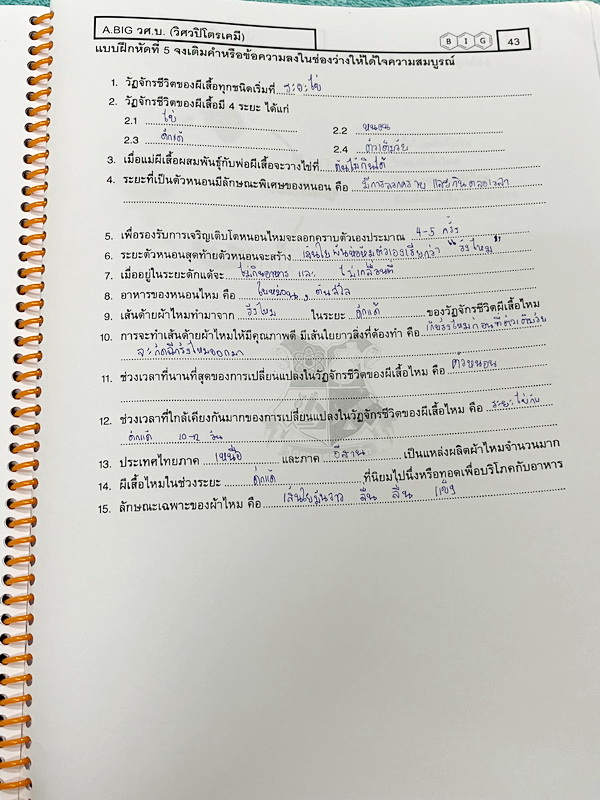 A.BIG วศ.บ. (วิศวปิโตรเคมี) B I G 43
แบบฝึกหัดที่ 5 จงเติมคำหรือข้อความลงในช่องว่างให้ได้ใจความสมบูรณ์
1. วัฏจักรชีวิตของผีเสื้อทุกชนิดเริ่มที่ ระยะไข่
2. วัฏจักรชีวิตของผีเสื้อมี 4 ระยะ ได้แก่
2.1 ไข่ 2.2 หนอน
2.3 ดักแด้ 2.4 ตัวเต็มวัย
3. เมื่อแม่ผีเสื้อผสมพันธุ์กับพ่อผีเสื้อจะวางไข่ที่ ต้นไม้กินได้
4. ระยะที่เป็นตัวหนอนมีลักษณะพิเศษของหนอน คือ มีการลอกคราบ และกินตลอดเวลา
5. เพื่อรองรับการเจริญเติบโตหนอนไหมจะลอกคราบตัวเองประมาณ 4-5 ครั้ง
6. ระยะตัวหนอนสุดท้ายตัวหนอนจะสร้าง เส้นใยพันห่อหุ้มตัวเองเรียกว่า "รังไหม"
7. เมื่ออยู่ในระยะดักแด้จะ ไม่กินอาหาร และ ไม่เคลื่อนที่
8. อาหารของหนอนไหม คือ ใบหม่อน,
9. เส้นด้ายผ้าไหมทำมาจาก รังไหม ในระยะ ดักแด้ ของวัฏจักรชีวิตผีเสื้อไหม
10. การจะทำเส้นด้ายผ้าไหมให้มีคุณภาพดี มีเส้นใยยาวสิ่งที่ต้องทำ คือ เก็บรังไหมก่อนที่ตัวเต็มวัย
จะกัดฉีกรังไหมออกมา
11. ช่วงเวลาที่นานที่สุดของการเปลี่ยนแปลงในวัฏจักรชีวิตของผีเสื้อไหม คือ ตัวหนอน
12. ช่วงเวลาที่ใกล้เคียงกันมากของการเปลี่ยนแปลงในวัฏจักรชีวิตของผีเสื้อไหม คือ ระยะไข่กับ
ดักแด้ 10-12 วัน
13. ประเทศไทยภาค เหนือ และภาค อีสาน เป็นแหล่งผลิตผ้าไหมจำนวนมาก
14. ผีเสื้อไหมในช่วงระยะ ดักแด้ ที่นิยมไปนึ่งหรือทอดเพื่อบริโภคกับอาหาร
15. ลักษณะเฉพาะของผ้าไหม คือ เส้นใยมันวาว ลื่น